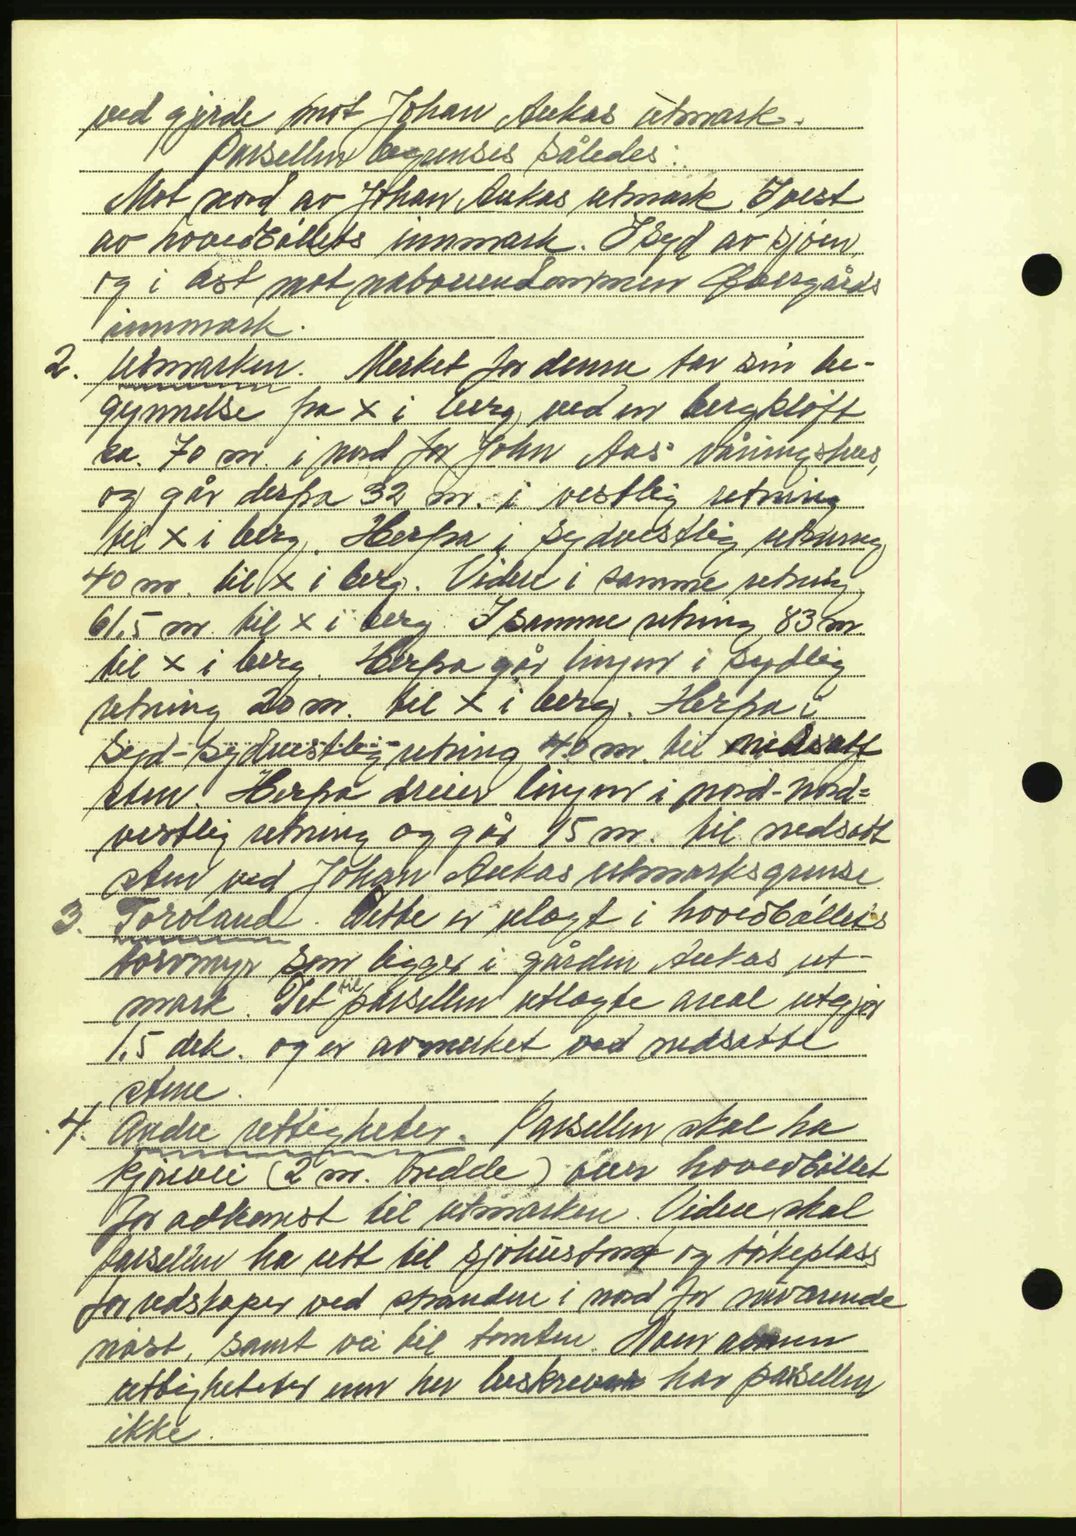 ved gjerde mot Johan Aukas utmark.
Parsellen begrenses således:
Mot nord av Johan Aukas utmark. I vest
av hovedbøllets innmark. I syd av sjøen,
og i øst mot naboeiendommen Øvergårds
innmark.
2. Utmarken. Merket for denne tar sin be-
gynnelse fra x i berg ved en bergkløft
ca. 70 m. i nord for John Aas' våningshus,
og går derfra 32 m. i vestlig retning
til x i berg. Herfra i sydvestlig retning
40 m. til x i berg. Videre i samme retning
61,5 m. til x i berg. I samme retning 83 m.
til x i berg. Herfra går linjen i sydlig
retning 20 m. til x i berg. Herfra i
syd-sydvestlig retning 40 m. til nedsatt
sten. Herfra dreier linjen i nord-nord-
vestlig retning og går 15 m. til nedsatt
sten ved Johan Aukas utmarksgrense.
3. Torvland. Dette er utlagt i hovedbøllets
torvmyr som ligger i gården Aukas ut-
mark. Det til parsellen utlagte areal utgjør
1,5 dek. og er avmerket ved nedsatte
stene.
4. Andre rettigheter. Parsellen skal ha
kjørevei (2 m. bredde) over hovedbøllet
for adkomst til utmarken. Videre skal
parsellen ha rett til sjøhustomt og tørkeplass
for redskaper ved stranden i nord for nuværende
nøst, samt vei til tomten. Noen annen
rettigheter enn her beskrevet har parsellen
ikke.